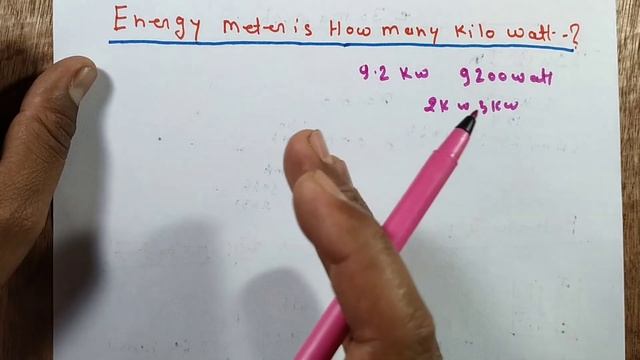 Energy meter is How many Kilo watt--?
9.2 Kw 9200watt
2Kw 3Kw